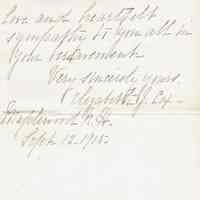 love and heartfelt
sympathy to you all in
your bereavement.
Very sincerely yours.
Elizabeth J. Cox.
Maplewood N.H.
Sept. 12. 1915.